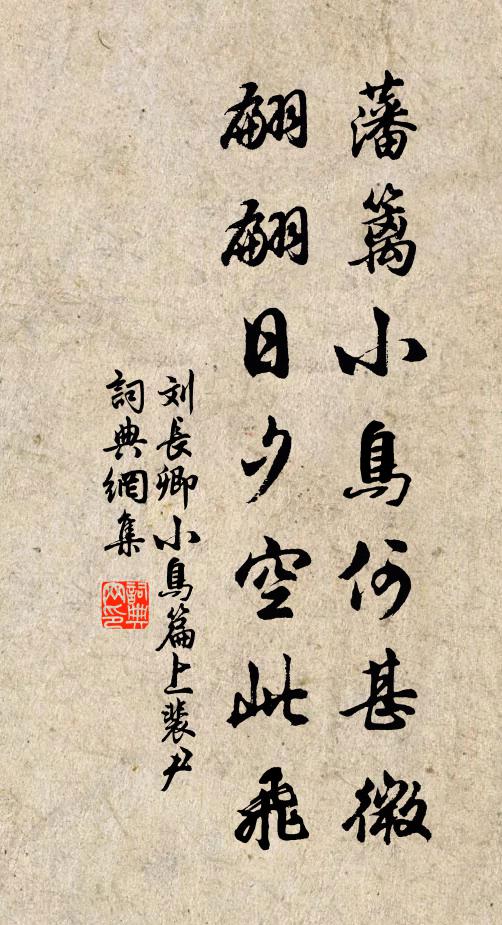 藩篱小鳥何甚微
翩翩日夕空此飛
刘長卿小鳥篇上裴尹
詞典網集
詞典網印